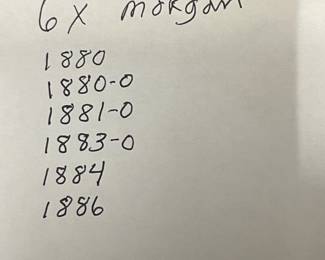 6 x morgan
1880
1880-0
1881-0
1883-0
1884
1886